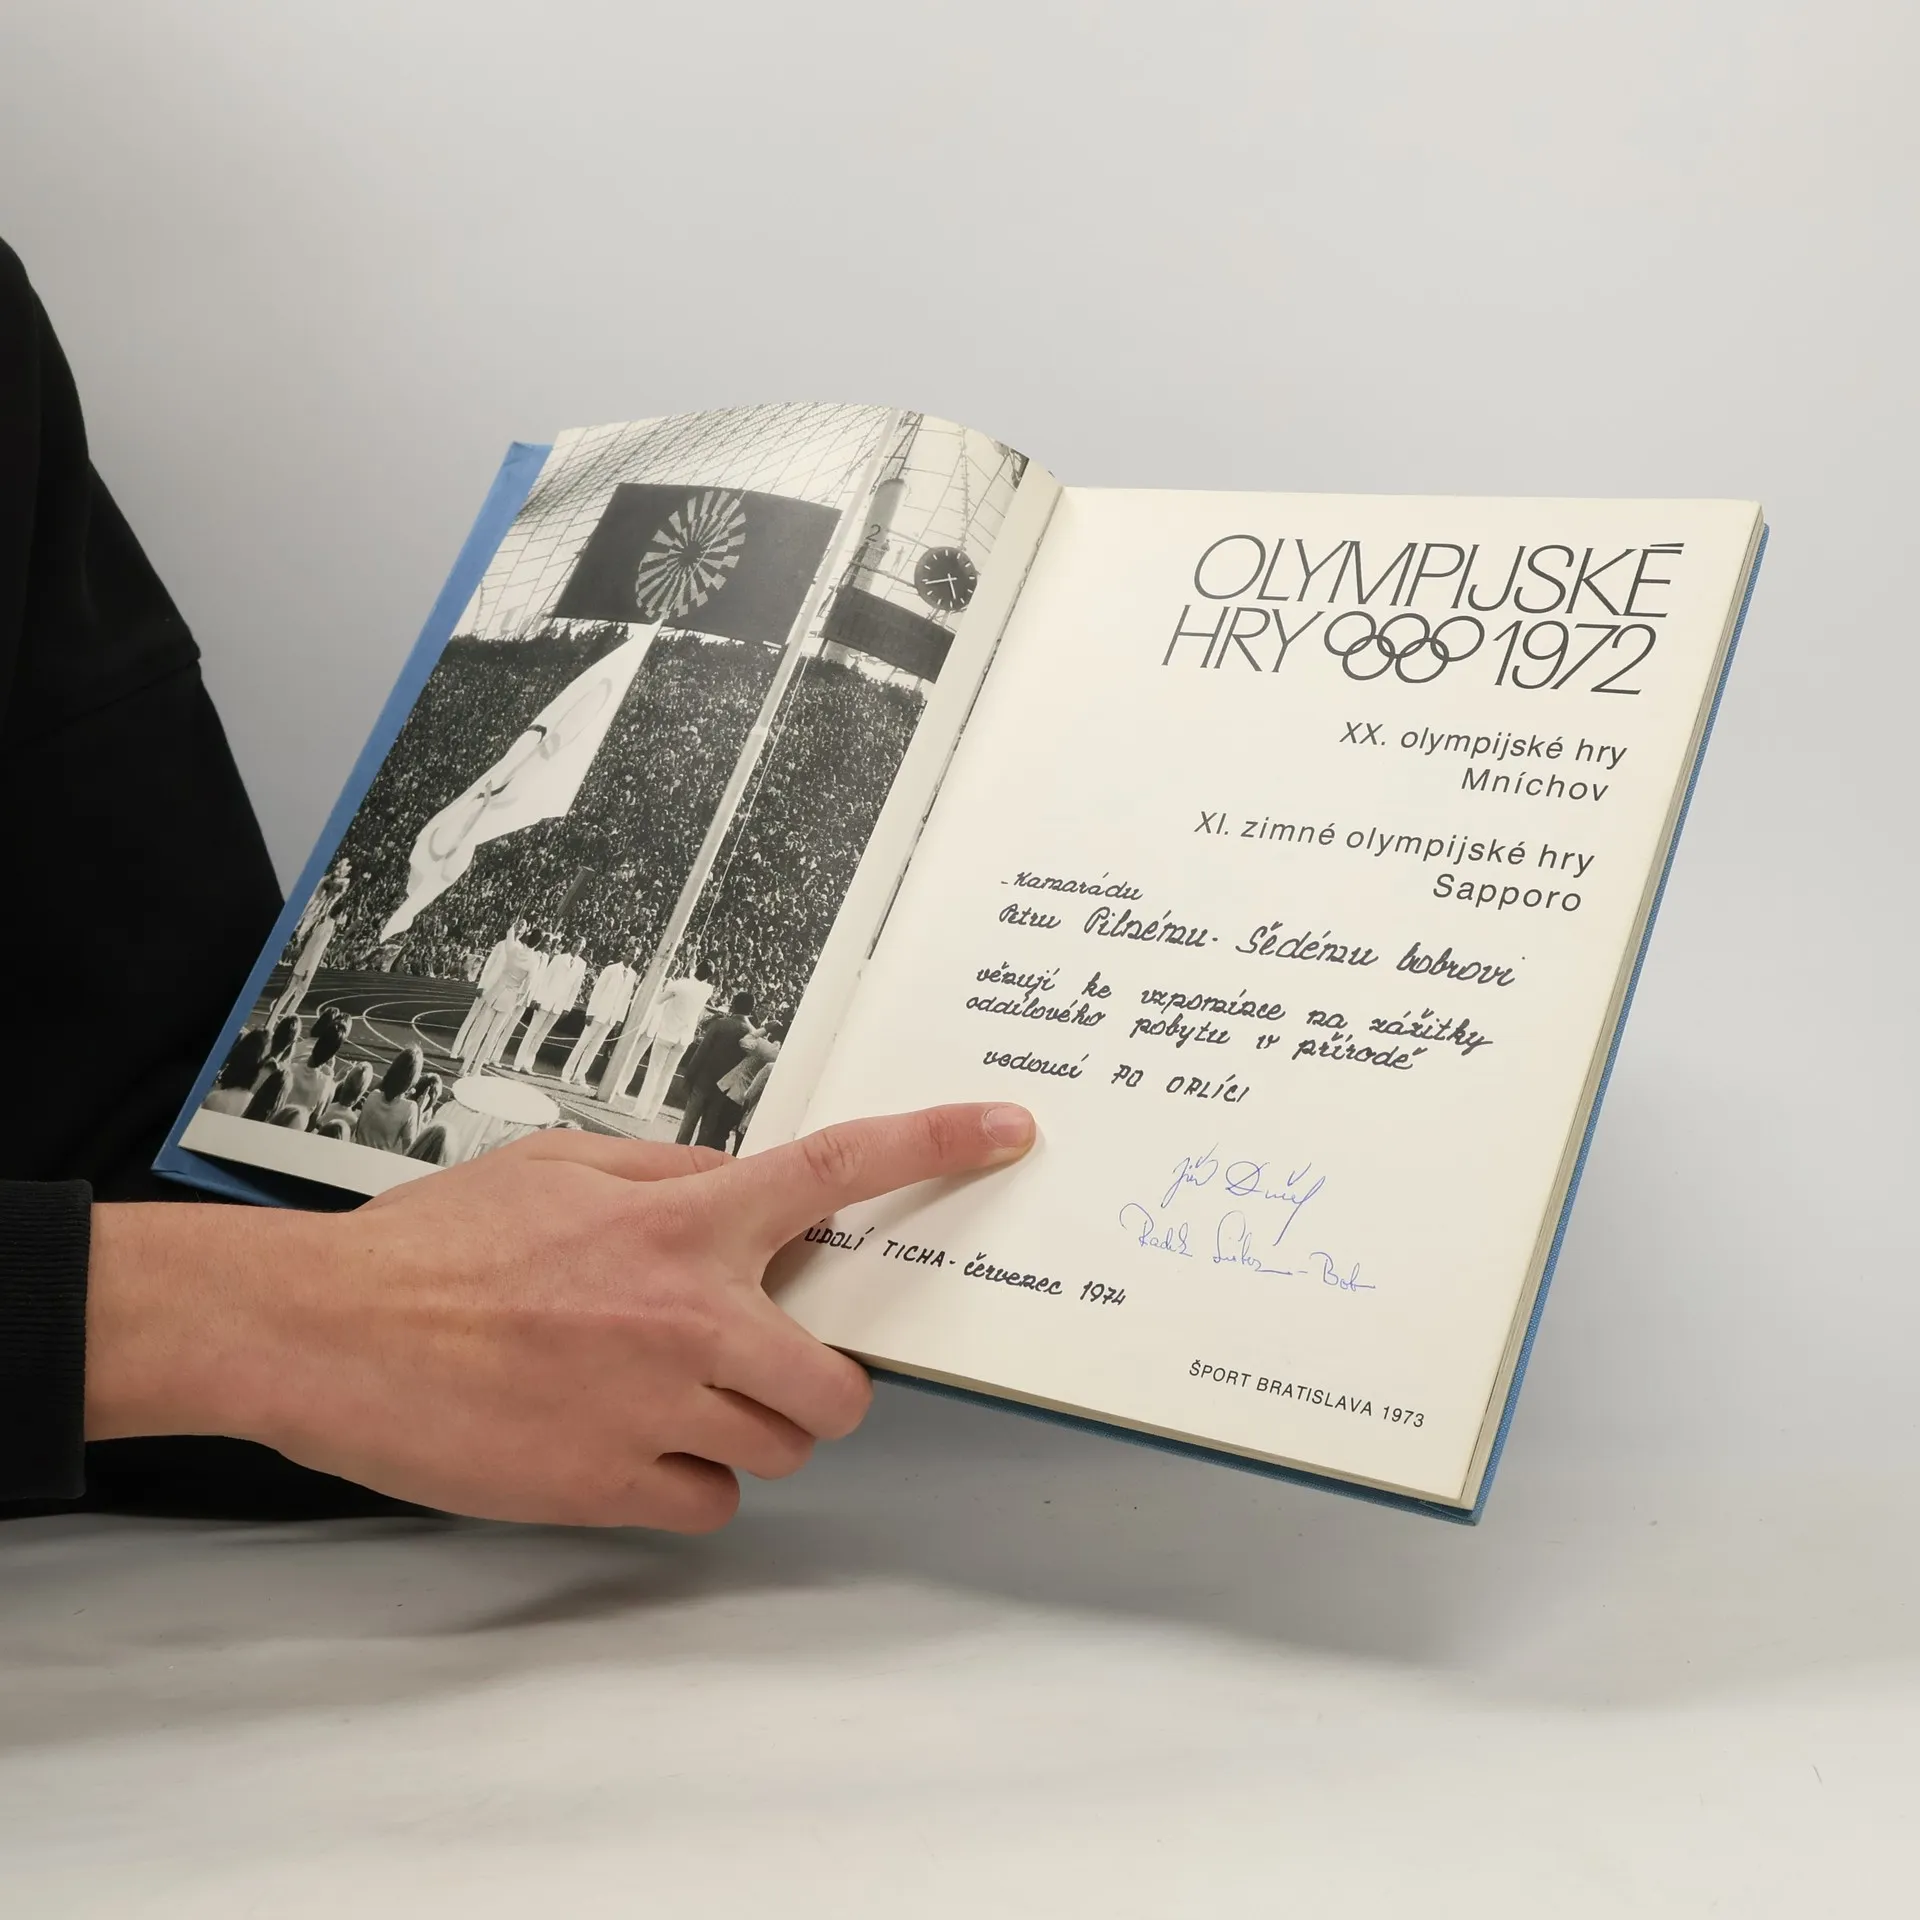 2
OLYMPIJSKÉ
HRY 1972
XX. olympijské hry
Mníchov
XI. zimné olympijské hry
Sapporo
- Kamarádu
Petru Pilnému - Šedému bobrovi
věnují ke vzpomínce na zážitky
oddílového pobytu v přírodě
vedoucí PO ORLÍCI
Jiří
Radek - Bob
ÚDOLÍ TICHA - červenec 1974
ŠPORT BRATISLAVA 1973